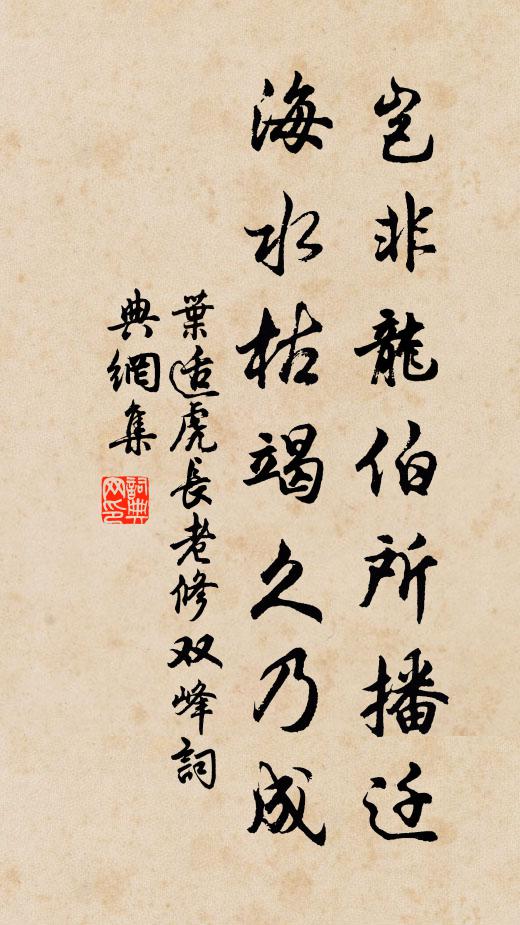 岂非龍伯所播迁
海水枯竭久乃成
葉适虎長老修双峰詞
典網集
詞典网印